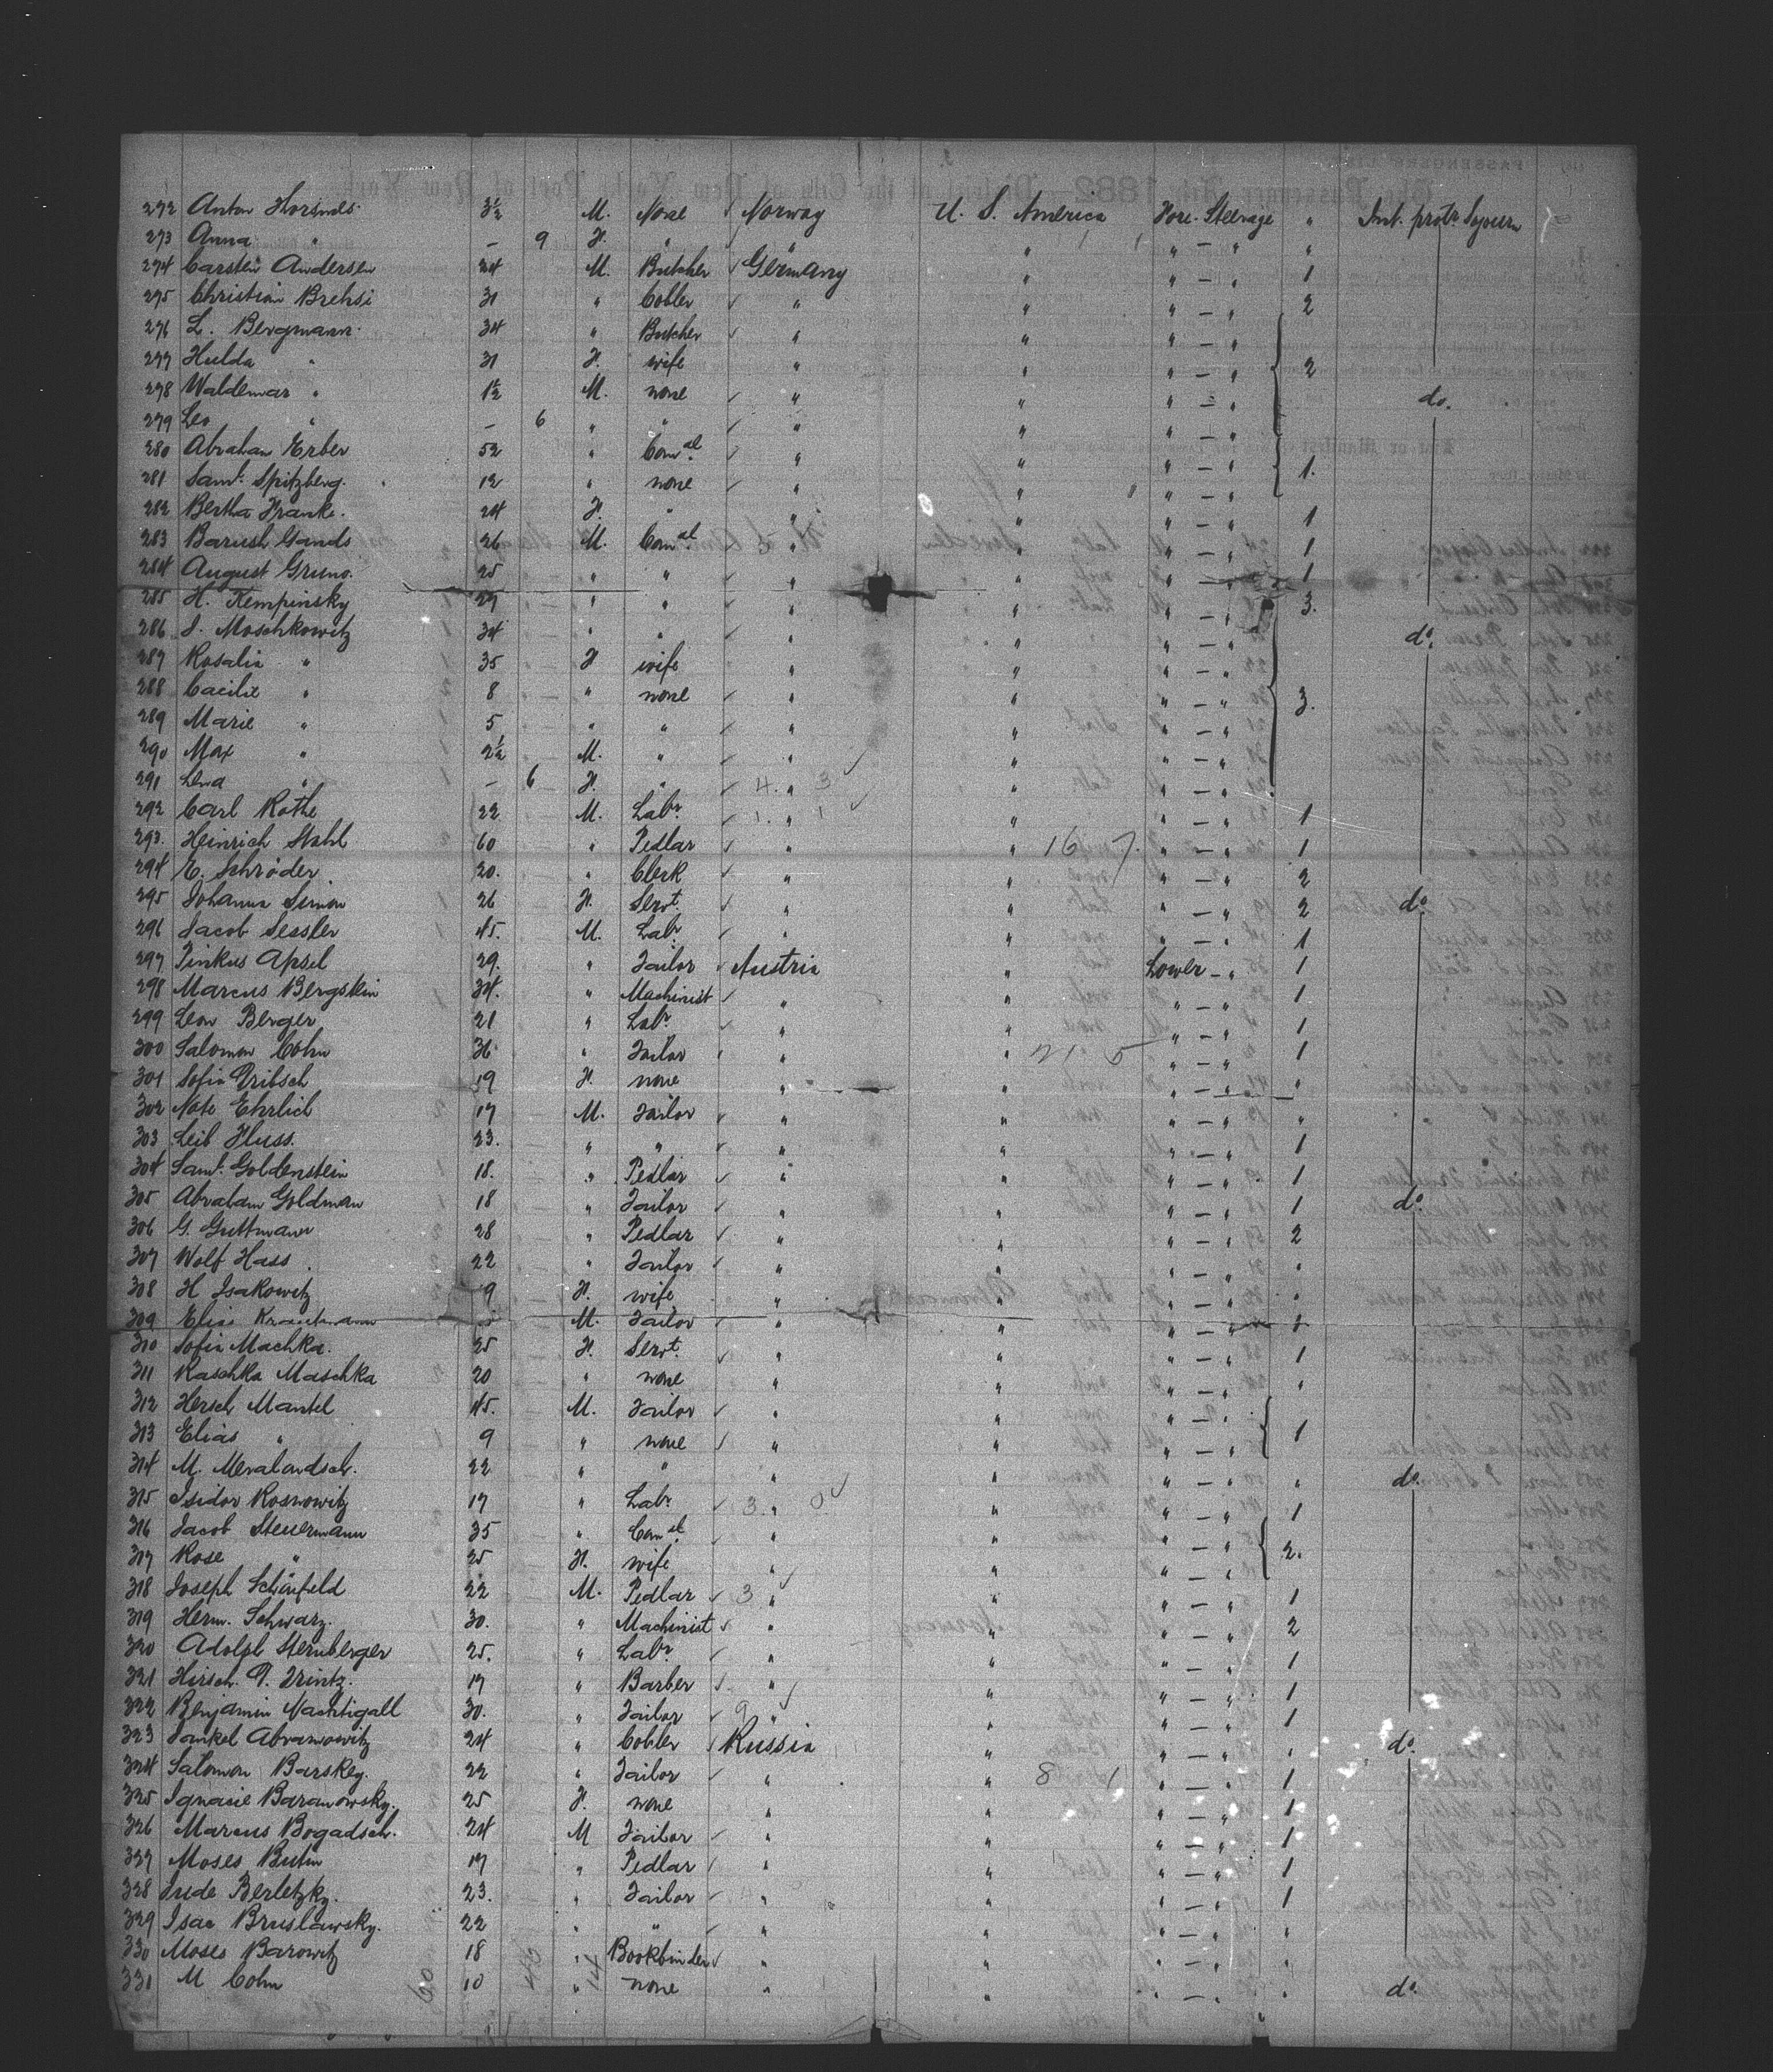 272 Anton Horsnes 3½ M. None Norway U. S. America Fore-Steerage " Int. protr. Sojourn
273 Anna " – 9 F. " " " " – " "
274 Carsten Andersen 24 M. Butcher Germany " " – " 1
275 Christian Brehsi 31 " Cobler " " " – " 2
276 L. Bergmann 34 " Butcher " " " – "
277 Hulda " 31 F. wife " " " – " 2
278 Waldemar " 1½ M. none " " " – " do.
279 Leo " – 6 " " " " " – "
280 Abraham Erber 52 " Comal " " " – "
281 Saml. Spitzberg. 12 " none " " " – " 1.
282 Bertha Franke. 24 F. " " " " – " 1
283 Barush Gands 26 M. Comal " " " – " 1
284 August Gruno. 25 " " " " " – " 1
285 H. Kempinsky 29 " " " " " – " 3.
286 J. Moschkowitz 34 " " " " " – " do.
287 Rosalia " 35 F wife " " " – "
288 Caecilie " 8 " none " " " – " 3.
289 Marie " 5 " " " " " – "
290 Max " 2½ M. " " " " – "
291 Lena " – 6 F. " 4. " 3 " " – "
292 Carl Rothe 22 M. Labr. 1. " 1 " " – " 1
293. Heinrich Stahl 60 " Pedlar " " 16 7. " – " 1
294 E. Schröder 20. " Clerk " " " – " 2
295 Johanna Simon 26 F. Servt. " " " – " 2 do.
296 Jacob Sessler 45. M. Labr. " " " – " 1
297 Pinkus Apsel 29. " Tailor Austria " Lower – " 1
298 Marcus Bergstein 34. " Machinist " " " – " 1
299 Leon Berger 21 " Labr. " " " – " 1
300 Salomon Cohn 36 " Tailor " " 21 5 " – " 1
301 Sofia Dribsch 19 F. none " " " – " "
302 Note Ehrlich 17 M. Tailor " " " – " "
303 Leib Fluss. 23. " " " " " – " 1
304 Saml. Goldenstein 18. " Pedlar " " " – " 1
305 Abraham Goldman 18 " Tailor " " " – " 1 do.
306 G. Guttmann 28 " Pedlar " " " – " 2
307 Wolf Hass 22 " Tailor " " " – " "
308 H Isakowitz 9 F. wife " " " – " "
309 Elias Krautmann M. Tailor " " " – " 1
310 Sofia Machka. 25 F. Servt. " " " – " 1
311 Raschka Maschka 20 " none " " " – " "
312 Hersch Mantel 45. M. Tailor " " " – "
313 Elias " 9 " none " " " – " 1
314 M. Meralandsch. 22 " " " " " – " " do.
315 Isidor Rosnowitz 17 " Labr. 3. " 0 " " – " 1
316 Jacob Steuermann 35 " Comal " " " – "
317 Rose " 25 F. wife " " " – " 2.
318 Joseph Schönfeld 22 M. Pedlar 3 " " " – " 1
319 Herm. Schwarz. 30. " Machinist " " " – " 2
320 Adolph Sternberger 25. " Labr. " " " – " 1
321 Hirsch. D. Trintz. 17 " Barber " " " – " 1
322 Benjamin Nachtigall 30. " Tailor 9 " " " – " 1
323 Jankel Abramowitz 24 " Cobler Russia " " – " " do.
324 Salomon Barskey. 22 " Tailor " " 8 1 " – " 1
325 Ignacie Baranowsky. 25 F. none " " " – " 1
326 Marcus Bogadsch. 24 M Tailor " " " – " 1
327 Moses Butin 17 " Pedlar " " " – " 1
328 Jude Berletzky. 23. " Tailor " " " – " 1
329 Isac Bruslawsky. 22 " " " " " – " "
330 Moses Barowitz 18 " Bookbinder " " " – " "
331 M Cohn 10 " none " " " – " " do.
60 46 14